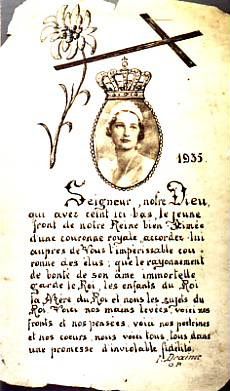 1935.
Seigneur, notre Dieu,
qui avez ceint ici bas, le jeune
front de notre Reine bien Aimée
d'une couronne royale, accordez-lui
auprès de Vous l'impérissable cou-
ronne des élus; que le rayonnement
de bonté de son âme immortelle
garde le Roi, les enfants du Roi
la Mère du Roi et nous les sujets du
Roi. Voici nos mains levées, voici nos
fronts et nos pensées, voici nos poitrines
et nos cœurs, nous voici tous, tous dans
une promesse d'inviolable fidélité.